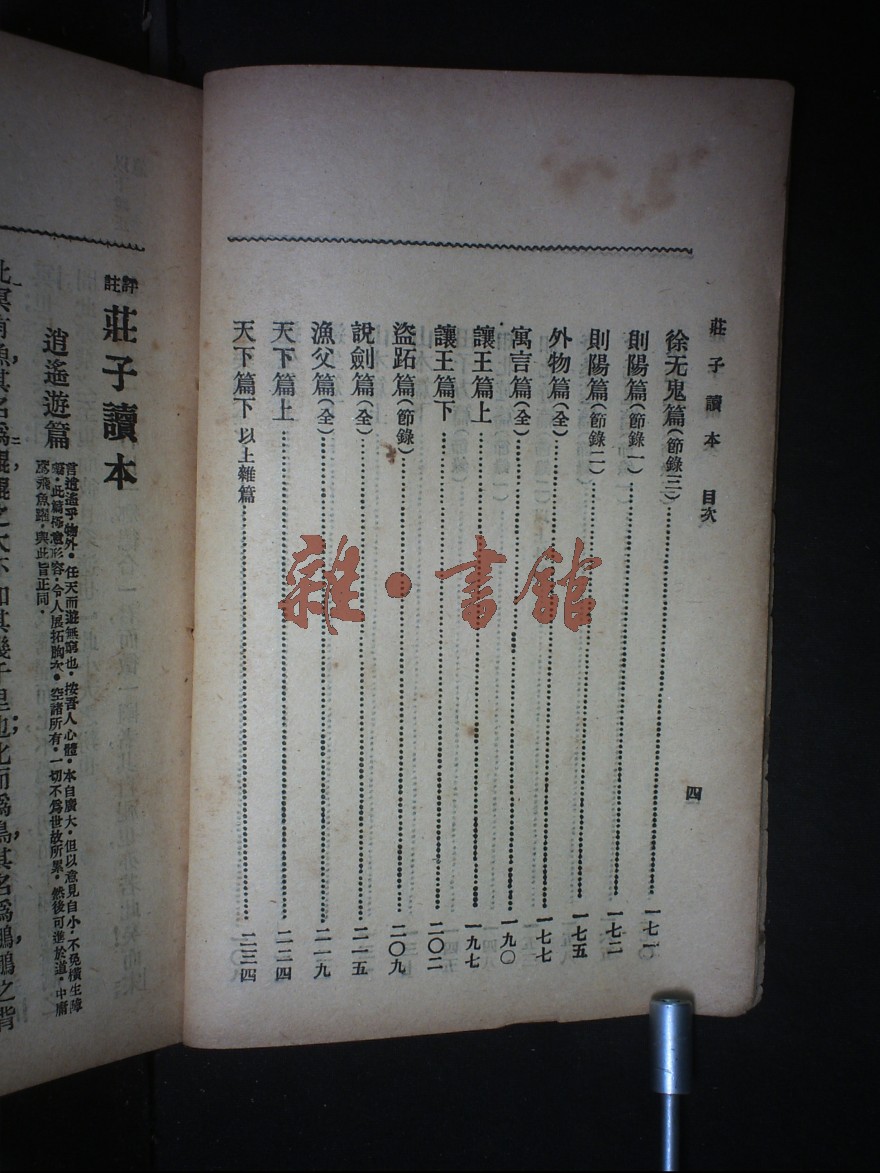 莊子讀本 目次 四
徐无鬼篇(節錄三)……一七一
則陽篇(節錄一)……一七二
則陽篇(節錄二)……一七五
外物篇(全)……一七七
寓言篇(全)……一九〇
讓王篇上……一九七
讓王篇下……二〇二
盜跖篇(節錄)……二〇九
說劍篇(全)……二一五
漁父篇(全)……二一九
天下篇上……二二四
天下篇下 以上雜篇……二三四
雜·書館
評註莊子讀本
逍遙遊篇
言逍遙乎物外。任天而遊無窮也。按吾人心體。本自廣大。但以意見自小。不免橫生障
礙。此篇極意形容。令人展拓胸次。空諸所有。一切不為世故所累。然後可進於道。中庸
鳶飛魚躍。與此旨正同。
北冥有魚,其名為鯤,鯤之大不知其幾千里也;化而為鳥,其名為鵬,鵬之背